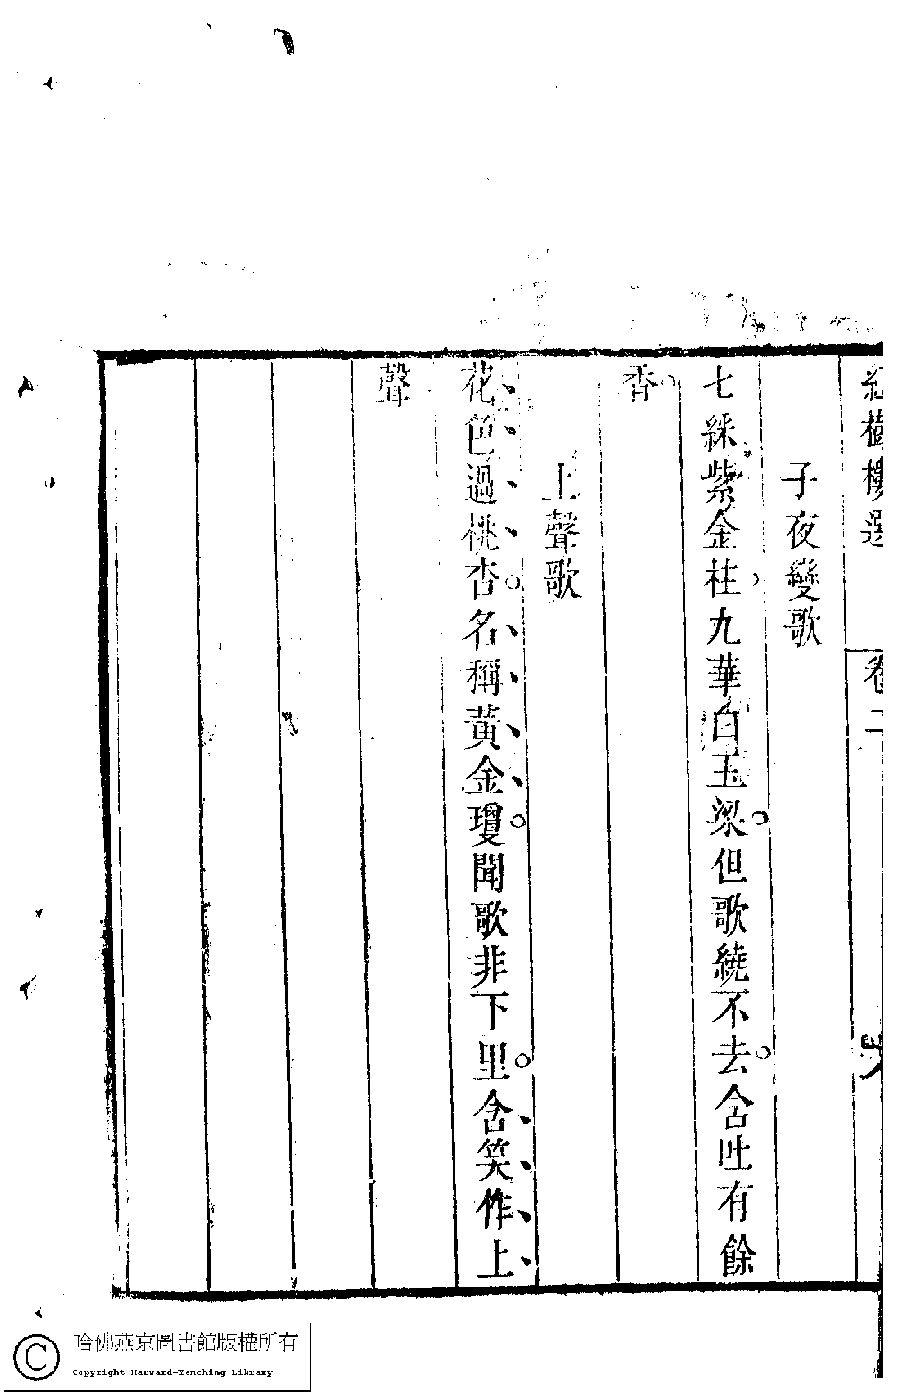 紅樹樓選 卷二
子夜變歌
七綵紫金柱九華白玉梁但歌繞不去含吐有餘
香
上聲歌
花色過桃杏名稱黃金瓊聞歌非下里含笑作上
聲
哈佛燕京圖書館版權所有
Copyright Harvard-Yenching Library